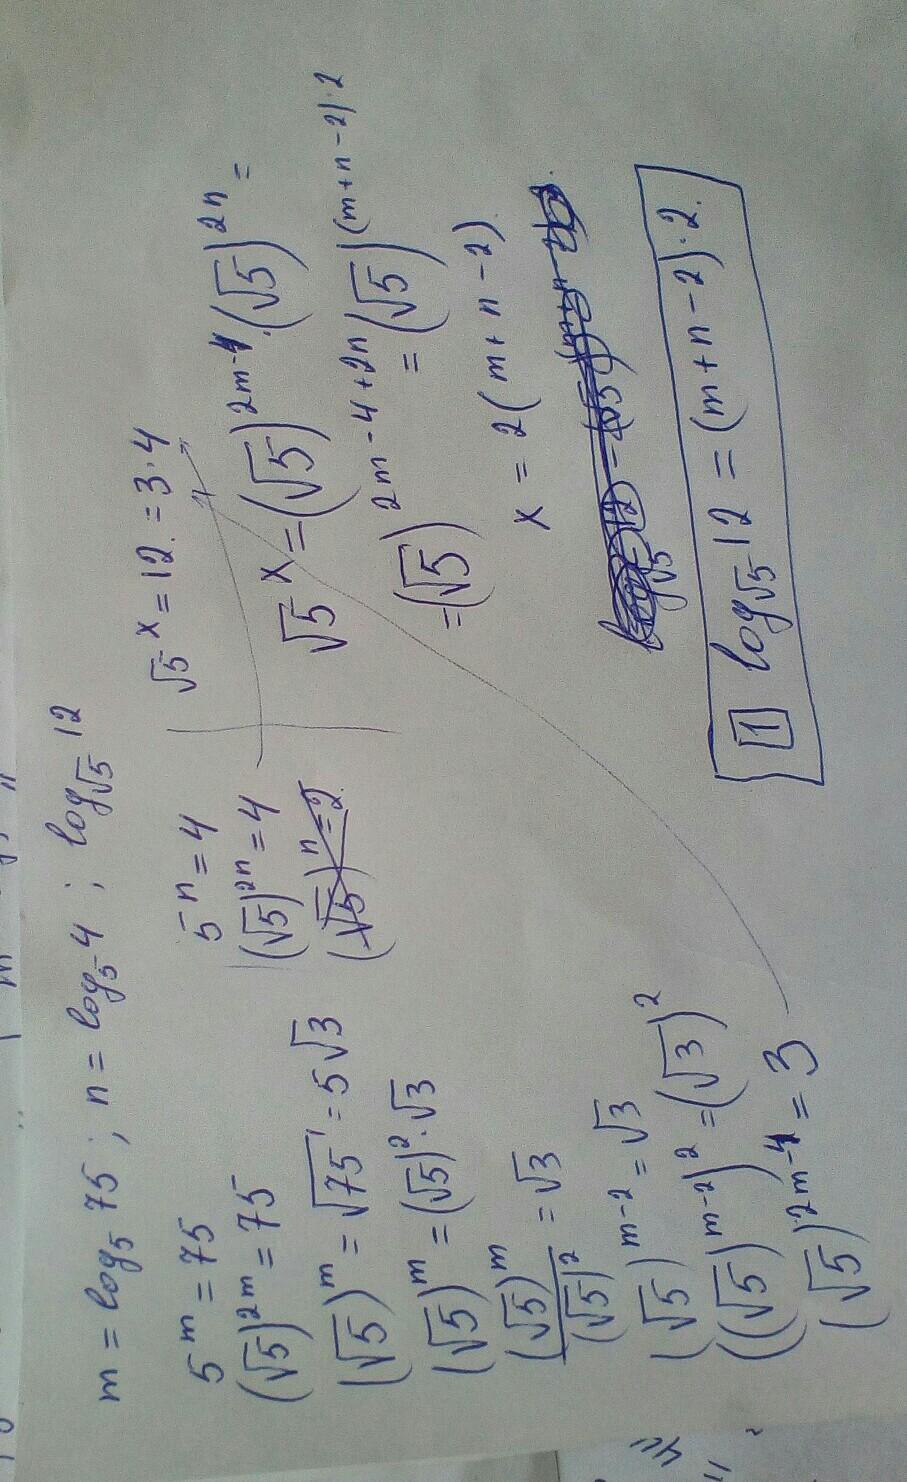 m = log₅ 75 ; n = log₅ 4 ; log√5 12
5^m = 75
(√5)^2m = 75
(√5)^m = √75 = 5√3
(√5)^m = (√5)²·√3
(√5)^m / (√5)² = √3
(√5)^m-2 = √3
((√5)^m-2)² = (√3)²
(√5)^2m-4 = 3
5^n = 4
(√5)^2n = 4
(√5)^n = 2
√5^x = 12 = 3·4
√5^x = (√5)^2m-4·(√5)^2n =
= (√5)^2m-4+2n = (√5)^(m+n-2)·2
x = 2(m+n-2)
1 log√5 12 = (m+n-2)·2.